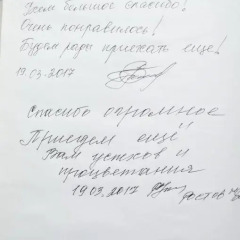 Всем большое спасибо!
Очень понравилось!
Будем рады приехать еще!
19.03.2017
Спасибо огромное
Приедем ещё
Вам успехов и
процветания
19.03.2017
Ростов